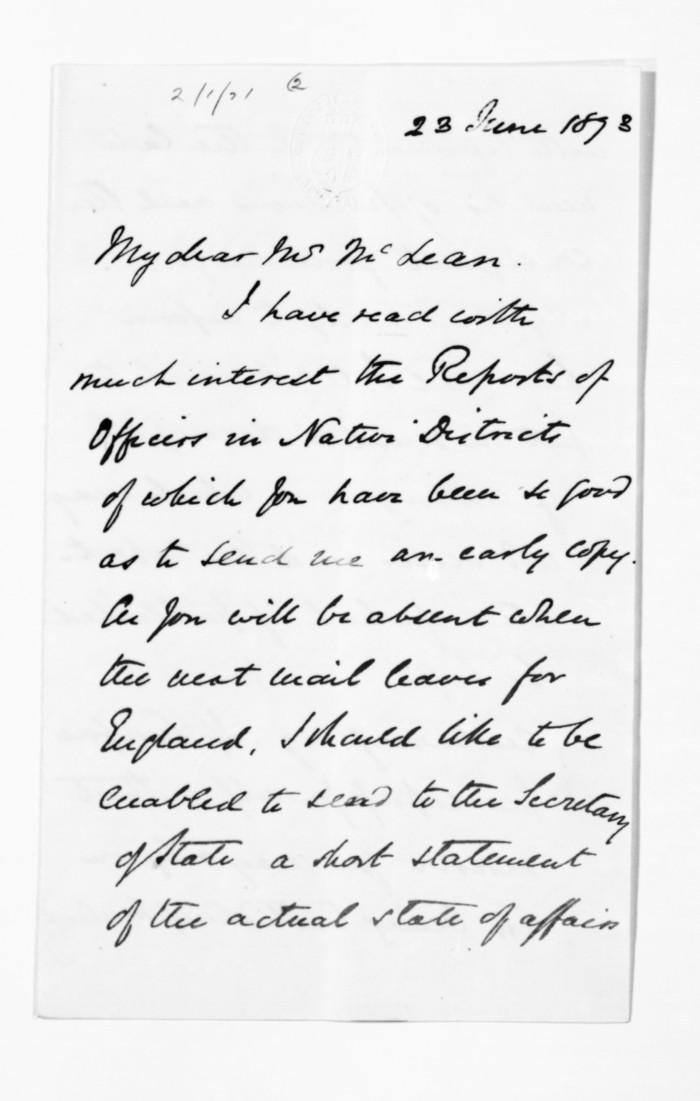 2/1/21 (2
23 June 1873
My dear Mr McLean.
I have read with
much interest the Reports of
Officers in Native Districts
of which you have been so good
as to send me an early copy.
As you will be absent when
the next mail leaves for
England, I should like to be
enabled to send to the Secretary
of State a short statement
of the actual state of affairs